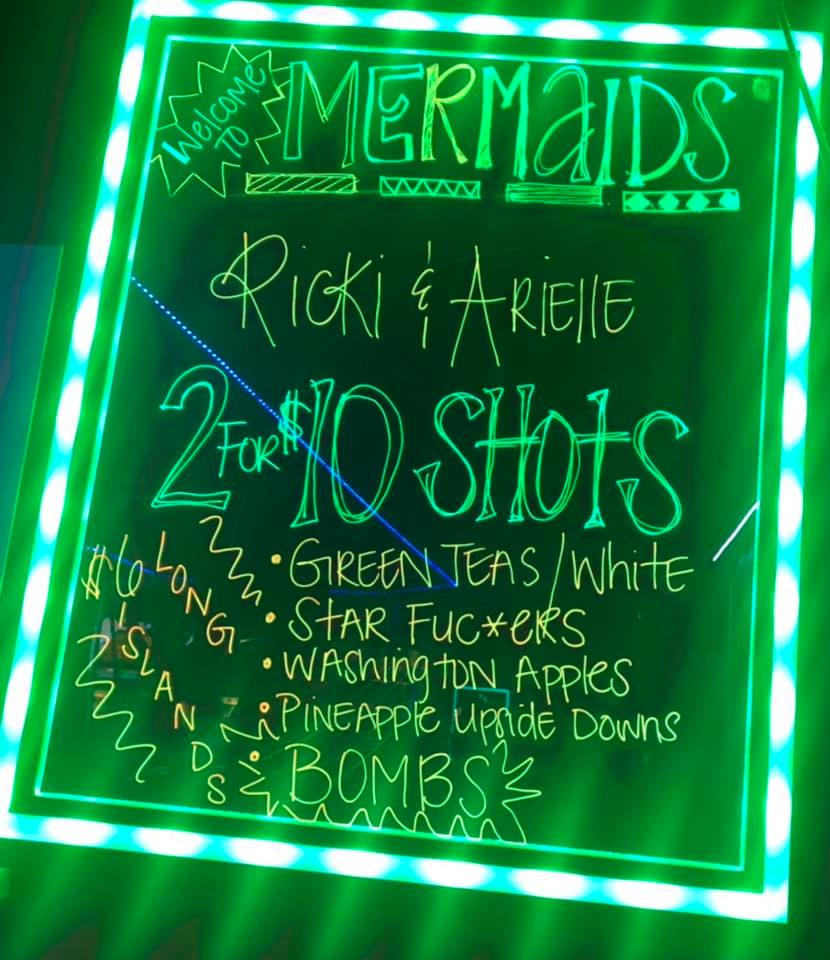 Welcome
To
MERMaIDS
RicKi & ARiElle
2 FOR $10 SHOtS
• GREEN TEAS/White
• STAR FUC*eRS
• WAShingtON Apples
• PiNEAPPlE UpsidE DOwNS
• BOMBS
$6 LONG
ISLANDS